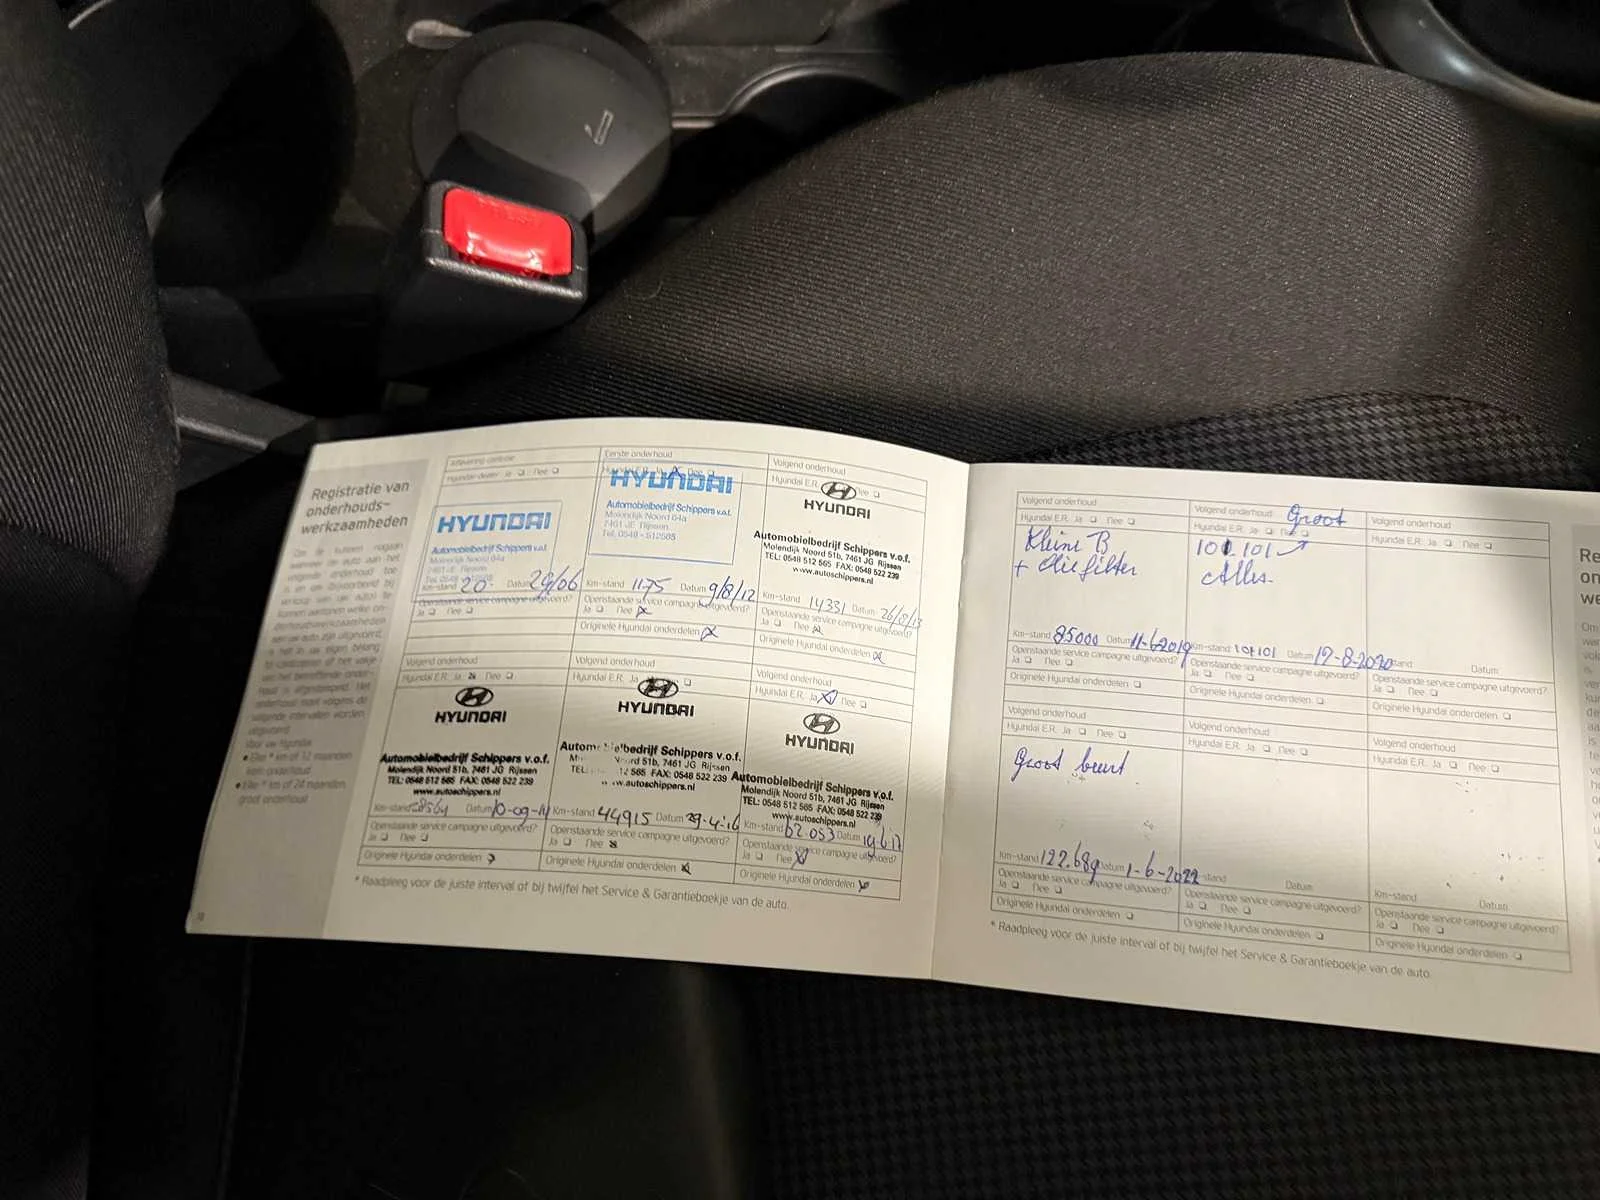 Registratie van
onderhouds-
werkzaamheden
Aflevering controle
Hyundai-dealer Ja ❏ Nee ❏
HYUNDAI
Automobielbedrijf Schippers v.o.f.
Molendijk Noord 64a
7461 JE Rijssen
Km-stand 20- Datum 29/06
Openstaande service campagne uitgevoerd?
Ja ❏ Nee ❏
Eerste onderhoud
Hyundai E.R. Ja Nee ❏
HYUNDAI
Automobielbedrijf Schippers v.o.f.
Molendijk Noord 64a
7461 JE Rijssen
Tel. 0548 - 512565
Km-stand 1175 Datum 9/8/12
Openstaande service campagne uitgevoerd?
Ja ❏ Nee x
Originele Hyundai onderdelen x
Volgend onderhoud
Hyundai E.R. Nee ❏
HYUNDAI
Automobielbedrijf Schippers v.o.f.
Molendijk Noord 51b, 7461 JG Rijssen
TEL: 0548 512 565 FAX: 0548 522 239
www.autoschippers.nl
Km-stand 14331 Datum 26/8/13
Openstaande service campagne uitgevoerd?
Ja ❏ Nee x
Originele Hyundai onderdelen x
Volgend onderhoud
Hyundai E.R. Ja x Nee ❏
HYUNDAI
Automobielbedrijf Schippers v.o.f.
Molendijk Noord 51b, 7461 JG Rijssen
TEL: 0548 512 565 FAX: 0548 522 239
www.autoschippers.nl
Km-stand 28564 Datum 10-09-14
Openstaande service campagne uitgevoerd?
Ja ❏ Nee ❏
Originele Hyundai onderdelen
Volgend onderhoud
Hyundai E.R. Ja ❏
HYUNDAI
Automobielbedrijf Schippers v.o.f.
Noord 51b, 7461 JG Rijssen
TEL: 12 565 FAX: 0548 522 239
www.autoschippers.nl
Km-stand 44915 Datum 29-4-16
Openstaande service campagne uitgevoerd?
Ja ❏ Nee x
Originele Hyundai onderdelen x
Volgend onderhoud
Hyundai E.R. Ja x Nee ❏
HYUNDAI
Automobielbedrijf Schippers v.o.f.
Molendijk Noord 51b, 7461 JG Rijssen
TEL: 0548 512 565 FAX: 0548 522 239
www.autoschippers.nl
Km-stand 62.053 Datum 19-6-17
Openstaande service campagne uitgevoerd?
Ja ❏ Nee x
Originele Hyundai onderdelen x
* Raadpleeg voor de juiste interval of bij twijfel het Service & Garantieboekje van de auto.
Volgend onderhoud
Hyundai E.R. Ja ❏ Nee ❏
Kleine B
+ oliefilter
Km-stand 85000 Datum 11-6-2019
Openstaande service campagne uitgevoerd?
Ja ❏ Nee ❏
Originele Hyundai onderdelen ❏
Volgend onderhoud Groot
Hyundai E.R. Ja ❏ Nee ❏
101.101
Alles.
Km-stand 101101 Datum 17-8-2020
Openstaande service campagne uitgevoerd?
Ja ❏ Nee ❏
Originele Hyundai onderdelen ❏
Volgend onderhoud
Hyundai E.R. Ja ❏ Nee ❏
stand Datum
Openstaande service campagne uitgevoerd?
Ja ❏ Nee ❏
Originele Hyundai onderdelen ❏
Volgend onderhoud
Hyundai E.R. Ja ❏ Nee ❏
Groot beurt
Km-stand 122.689 Datum 1-6-2022
Openstaande service campagne uitgevoerd?
Ja ❏ Nee ❏
Originele Hyundai onderdelen ❏
Volgend onderhoud
Hyundai E.R. Ja ❏ Nee ❏
stand Datum
Openstaande service campagne uitgevoerd?
Ja ❏ Nee ❏
Originele Hyundai onderdelen ❏
Volgend onderhoud
Hyundai E.R. Ja ❏ Nee ❏
Km-stand Datum
Openstaande service campagne uitgevoerd?
Ja ❏ Nee ❏
Originele Hyundai onderdelen ❏
* Raadpleeg voor de juiste interval of bij twijfel het Service & Garantieboekje van de auto.